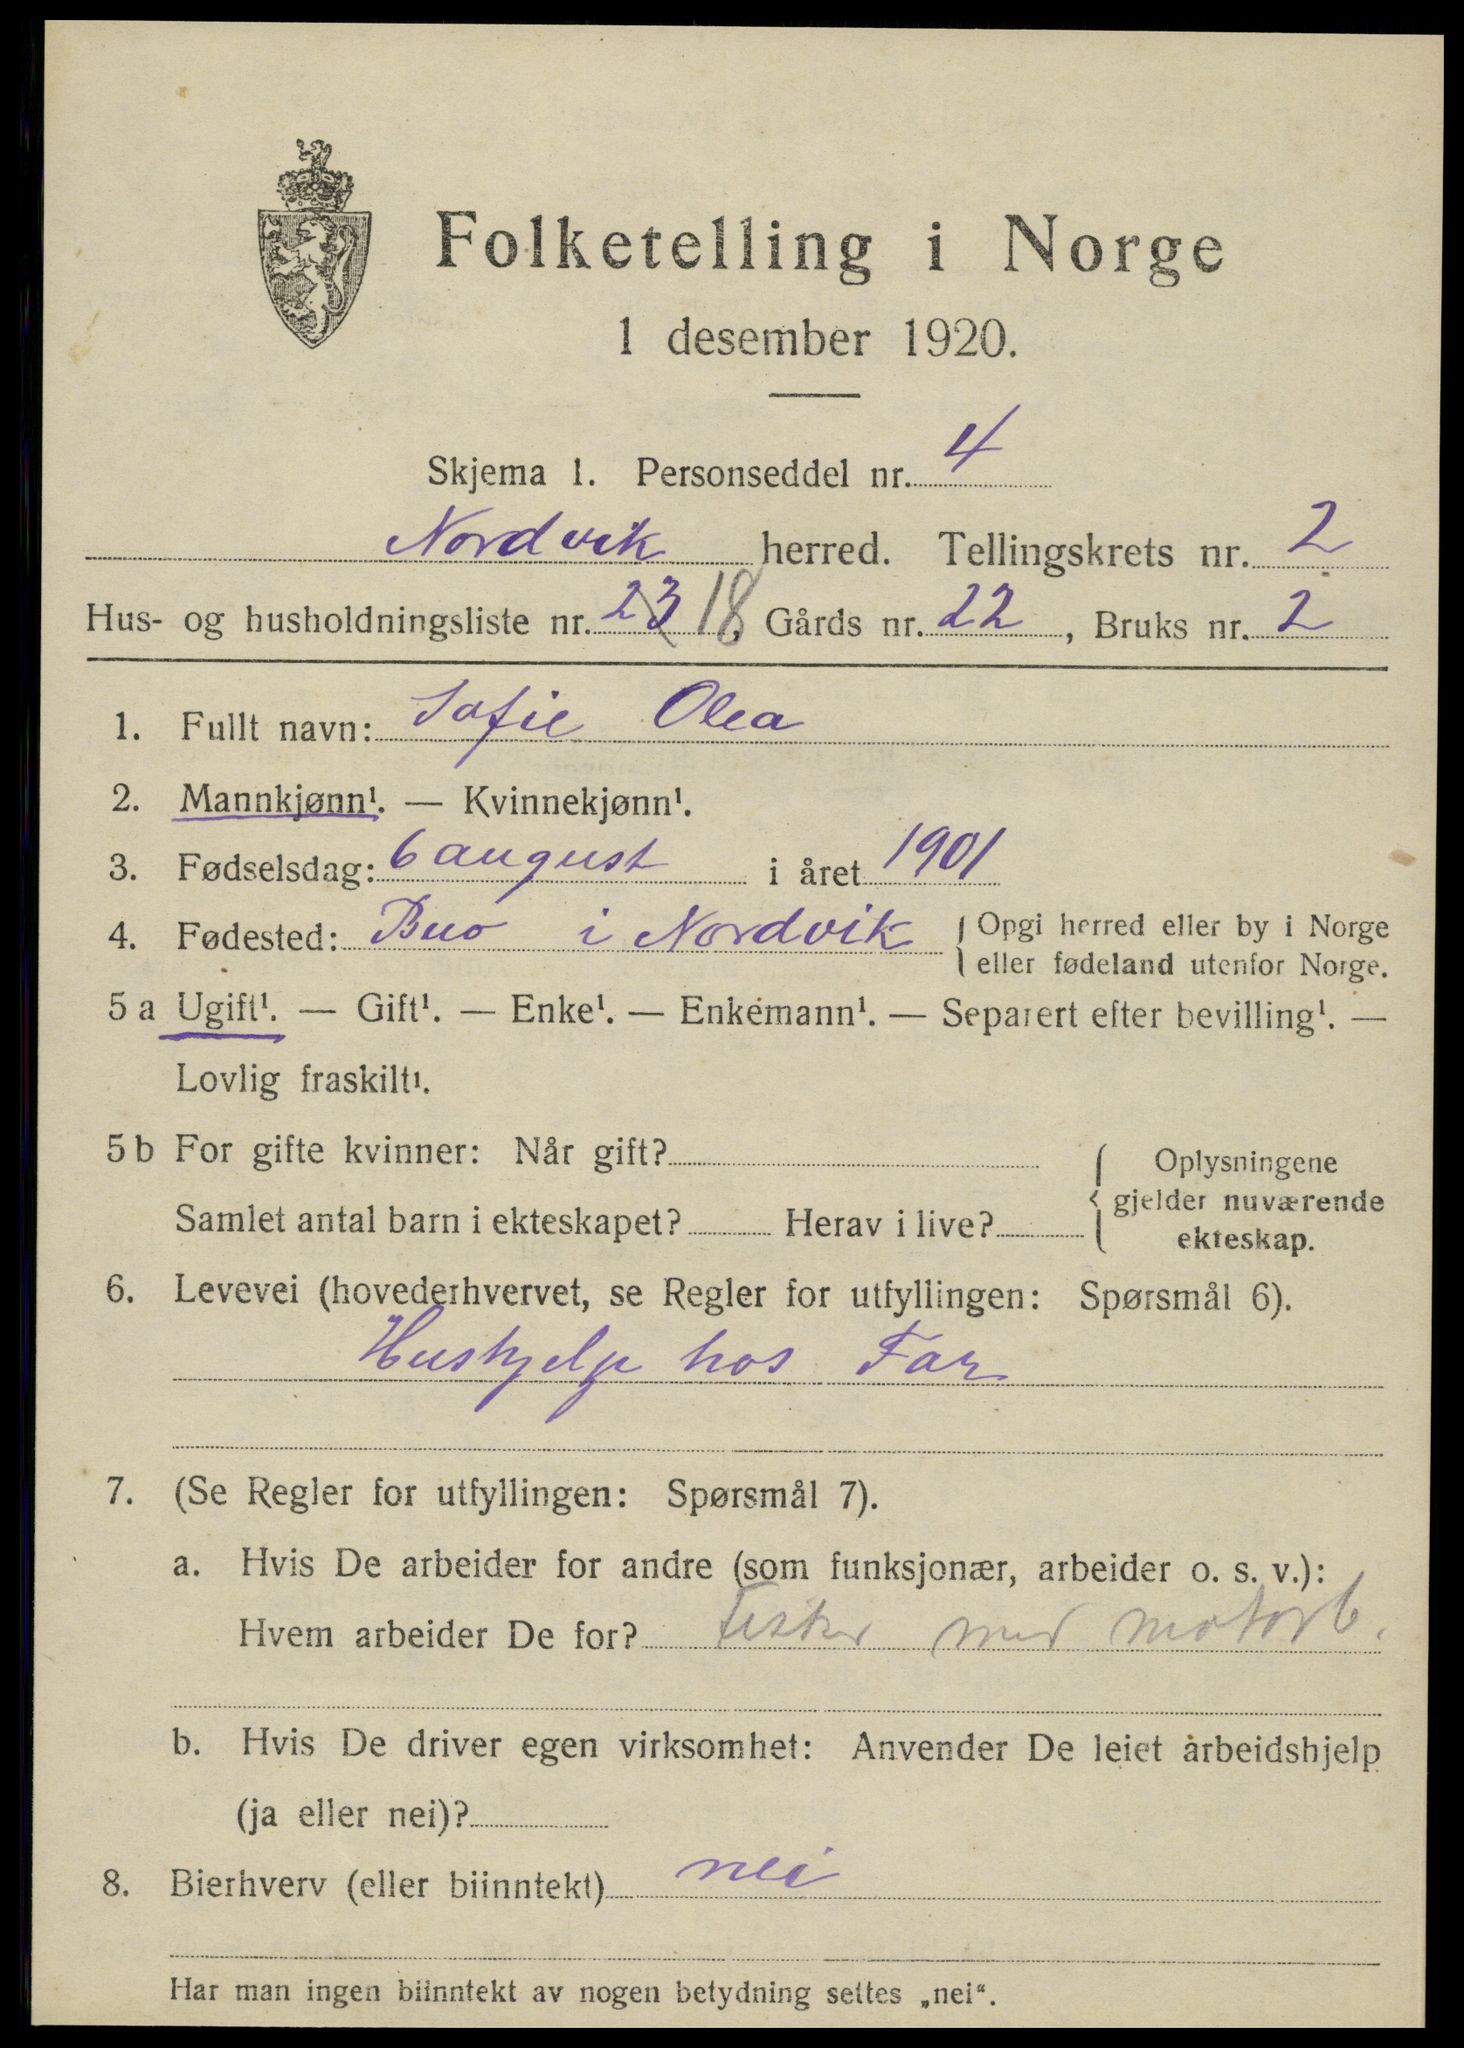 Folketelling i Norge
1 desember 1920.
Skjema 1. Personseddel nr. 4
Nordvik herred. Tellingskrets nr. 2
Hus- og husholdningsliste nr. 23 18, Gårds nr. 22, Bruks nr. 2
1. Fullt navn: Sofie Olea
2. Mannkjønn¹. — Kvinnekjønn¹.
3. Fødselsdag: 6 august i året 1901
4. Fødested: Buo i Nordvik { Opgi herred eller by i Norge
eller fødeland utenfor Norge.
5 a Ugift¹. — Gift¹. — Enke¹. — Enkemann¹. — Separert efter bevilling¹. —
Lovlig fraskilt¹.
5 b For gifte kvinner: Når gift? { Oplysningene
gjelder nuværende
Samlet antal barn i ekteskapet? Herav i live?
ekteskap.
6. Levevei (hovederhvervet, se Regler for utfyllingen: Spørsmål 6).
Hushjelp hos Far
7. (Se Regler for utfyllingen: Spørsmål 7).
a. Hvis De arbeider for andre (som funksjonær, arbeider o. s. v.):
Hvem arbeider De for? Fisker med motorb.
b. Hvis De driver egen virksomhet: Anvender De leiet arbeidshjelp
(ja eller nei)?
8. Bierhverv (eller biinntekt) nei
Har man ingen biinntekt av nogen betydning settes „nei“.